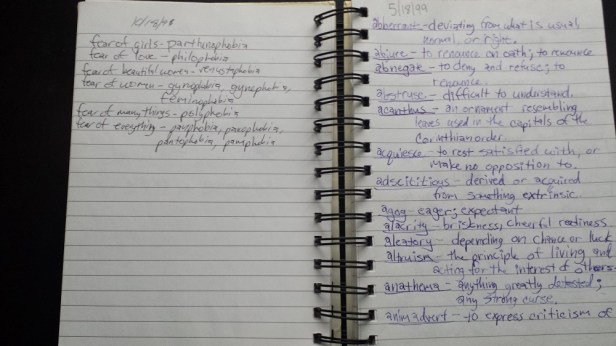 10/19/98
fear of girls - parthenophobia
fear of love - philophobia
fear of beautiful women - venustaphobia
fear of women - gynophobia, gynephobia,
feminophobia
fear of many things - polyphobia
fear of everything - panophobia,
pantophobia, panphobia
5/18/99
aberrant - deviating from what is usual,
normal, or right.
abjure - to renounce on oath; to renounce
abnegate - to deny and refuse; to
renounce.
abstruse - difficult to understand.
acanthus - an ornament resembling
leaves used in the capitals of the
Corinthian order.
acquiesce - to rest satisfied with, or
make no opposition to.
adscititious - derived or acquired
from something extrinsic.
agog - eager; expectant
alacrity - briskness, cheerful readiness
aleatory - depending on chance or luck
altruism - the principle of living and
acting for the interest of others.
anathema - anything greatly detested;
any strong curse.
animadvert - to express criticism of